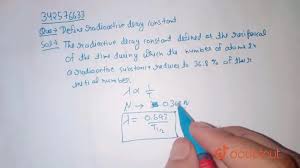 342576633
Ques Define radioactive decay constant
Sol The radioactive decay constant defined as the reciprocal
of the time during which the number of atoms in
a radioactive substance reduces to 36.8 % of their
initial number.
λ ∝ 1/t
N → 0.368N
λ = 0.693/T1/2
doubtnut